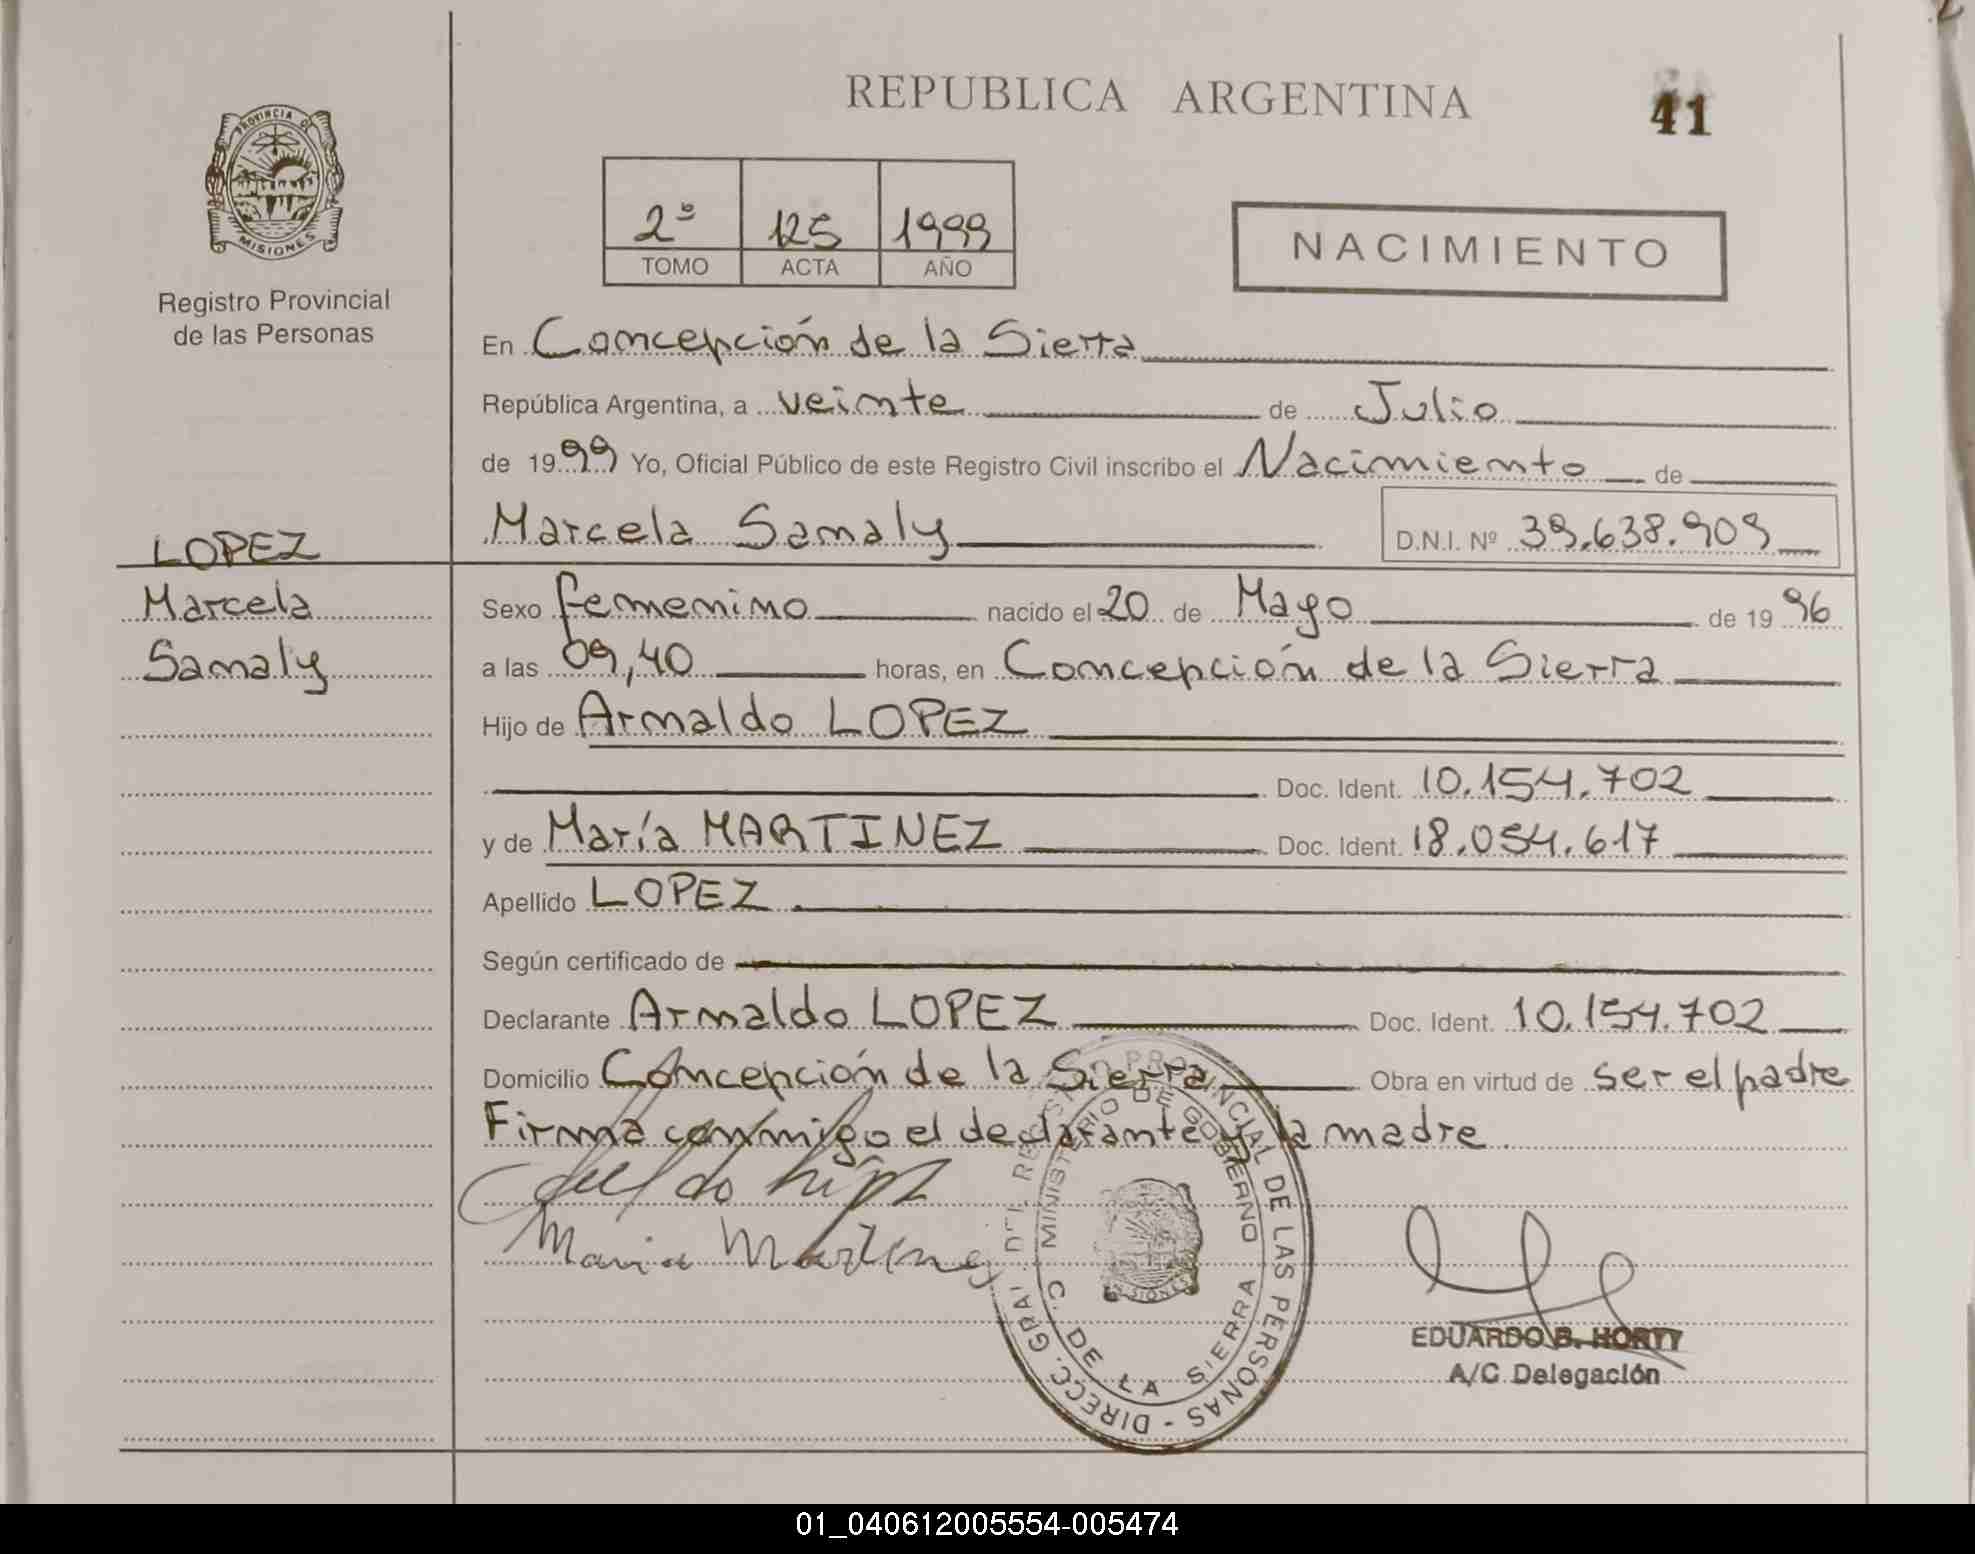 REPUBLICA ARGENTINA
41
PROVINCIA DE
MISIONES
Registro Provincial
de las Personas
2º 125 1999
TOMO ACTA AÑO
NACIMIENTO
En Concepción de la Sierra
República Argentina, a veinte de Julio
de 1999 Yo, Oficial Público de este Registro Civil inscribo el Nacimiento de
Marcela Samaly D.N.I. Nº 39.638.909
LOPEZ
Marcela
Samaly
Sexo femenino nacido el 20 de Mayo de 1996
a las 09,40 horas, en Concepción de la Sierra
Hijo de Arnaldo LOPEZ
Doc. Ident. 10.154.702
y de María MARTINEZ Doc. Ident. 18.054.617
Apellido LOPEZ
Según certificado de
Declarante Arnaldo LOPEZ Doc. Ident. 10.154.702
Domicilio Concepción de la Sierra Obra en virtud de ser el padre
Firma conmigo el declarante y la madre
Maria Martinez
DIRECC. GRAL. DEL REGISTRO PROVINCIAL DE LAS PERSONAS -
MINISTERIO DE GOBIERNO
C. DE LA SIERRA
MISIONES
EDUARDO B. HORTY
A/C Delegación
01_040612005554-005474